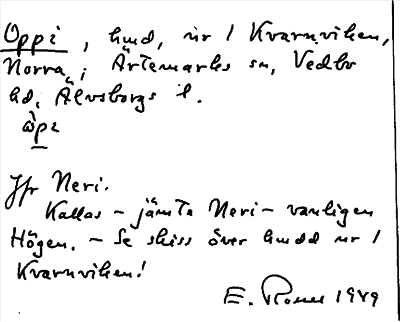 Oppi, hmd, nr 1 Kvarnviken,
Norra, i Ärtemarks sn, Vedbo
hd, Älvsborgs l.
òpi
Jfr Neri.
Kallas – jämte Neri – vanligen
Högen. – Se skiss över hmdd nr 1
Kvarnviken!
E. 1949